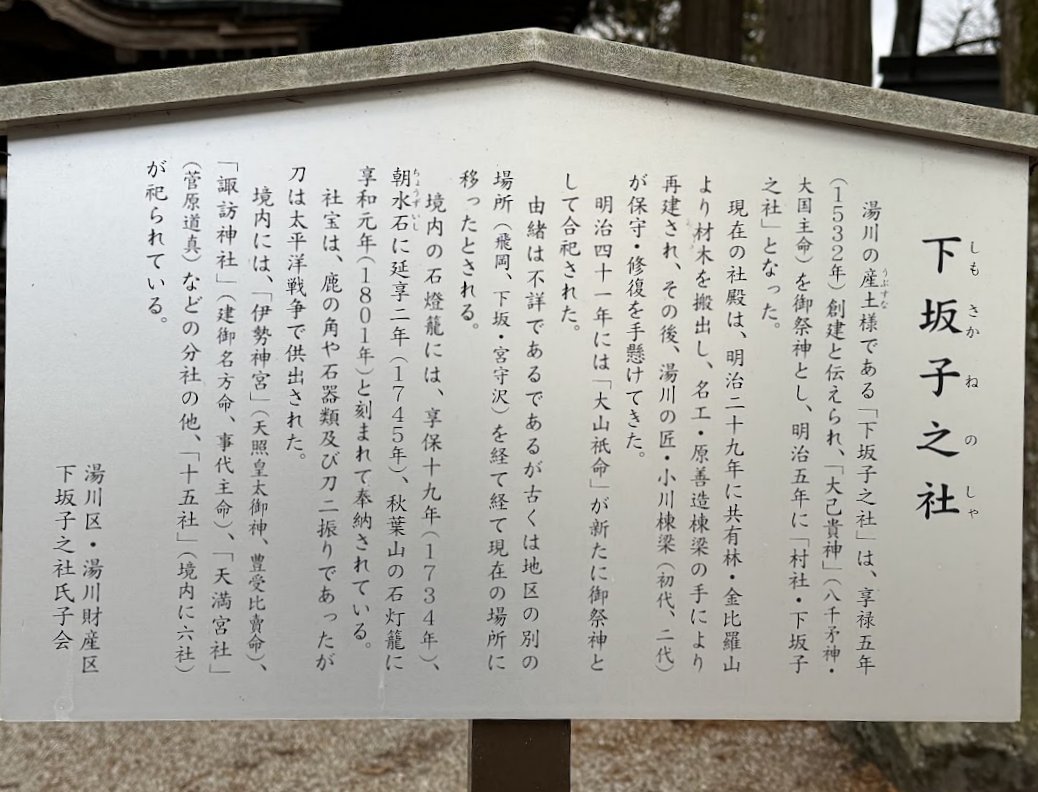 下坂子之社
しもさかねのしゃ
湯川の産土様である「下坂子之社」は、享禄五年
うぶすな
(1532年)創建と伝えられ、「大己貴神」(八千矛神・
大国主命)を御祭神とし、明治五年に「村社・下坂子
之社」となった。
現在の社殿は、明治二十九年に共有林・金比羅山
より材木を搬出し、名工・原善造棟梁の手により
再建され、その後、湯川の匠・小川棟梁(初代、二代)
が保守・修復を手懸けてきた。
明治四十一年には「大山祇命」が新たに御祭神と
して合祀された。
由緒は不詳であるであるが古くは地区の別の
場所(飛岡、下坂・宮守沢)を経て経て現在の場所に
移ったとされる。
境内の石燈籠には、享保十九年(1734年)、
朝水石に延享二年(1745年)、秋葉山の石灯籠に
ちょうずいし
享和元年(1801年)と刻まれて奉納されている。
社宝は、鹿の角や石器類及び刀二振りであったが
刀は太平洋戦争で供出された。
境内には、「伊勢神宮」(天照皇太御神、豊受比賣命)、
「諏訪神社」(建御名方命、事代主命)、「天満宮社」
(菅原道真)などの分社の他、「十五社」(境内に六社)
が祀られている。
湯川区・湯川財産区
下坂子之社氏子会